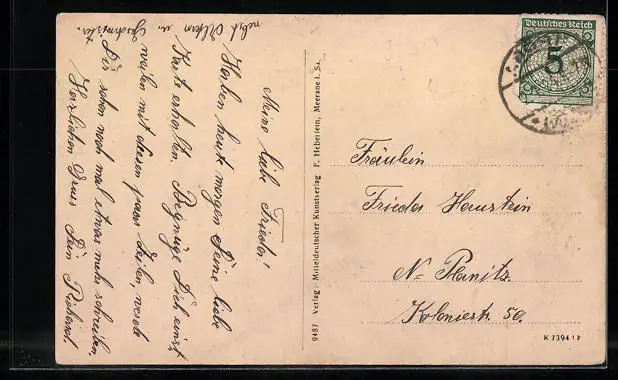 Meine liebe Frieda!
Haben heut morgen Deine liebe
Karte erhalten. Begnüge Dich einst
weilen mit diesen paar Zeilen, werde
Dir schon noch mal etwas mehr schreiben.
Herzlichen Gruss Dein Richard.
nebst Eltern u. Geschwister.
9487 Verlag: Mitteldeutscher Kunstverlag F. Heberlein, Meerane i. Sa.
Deutsches Reich
5
Fräulein
Frieda
N- Planitz
Koloniestr. 50.
K 7394